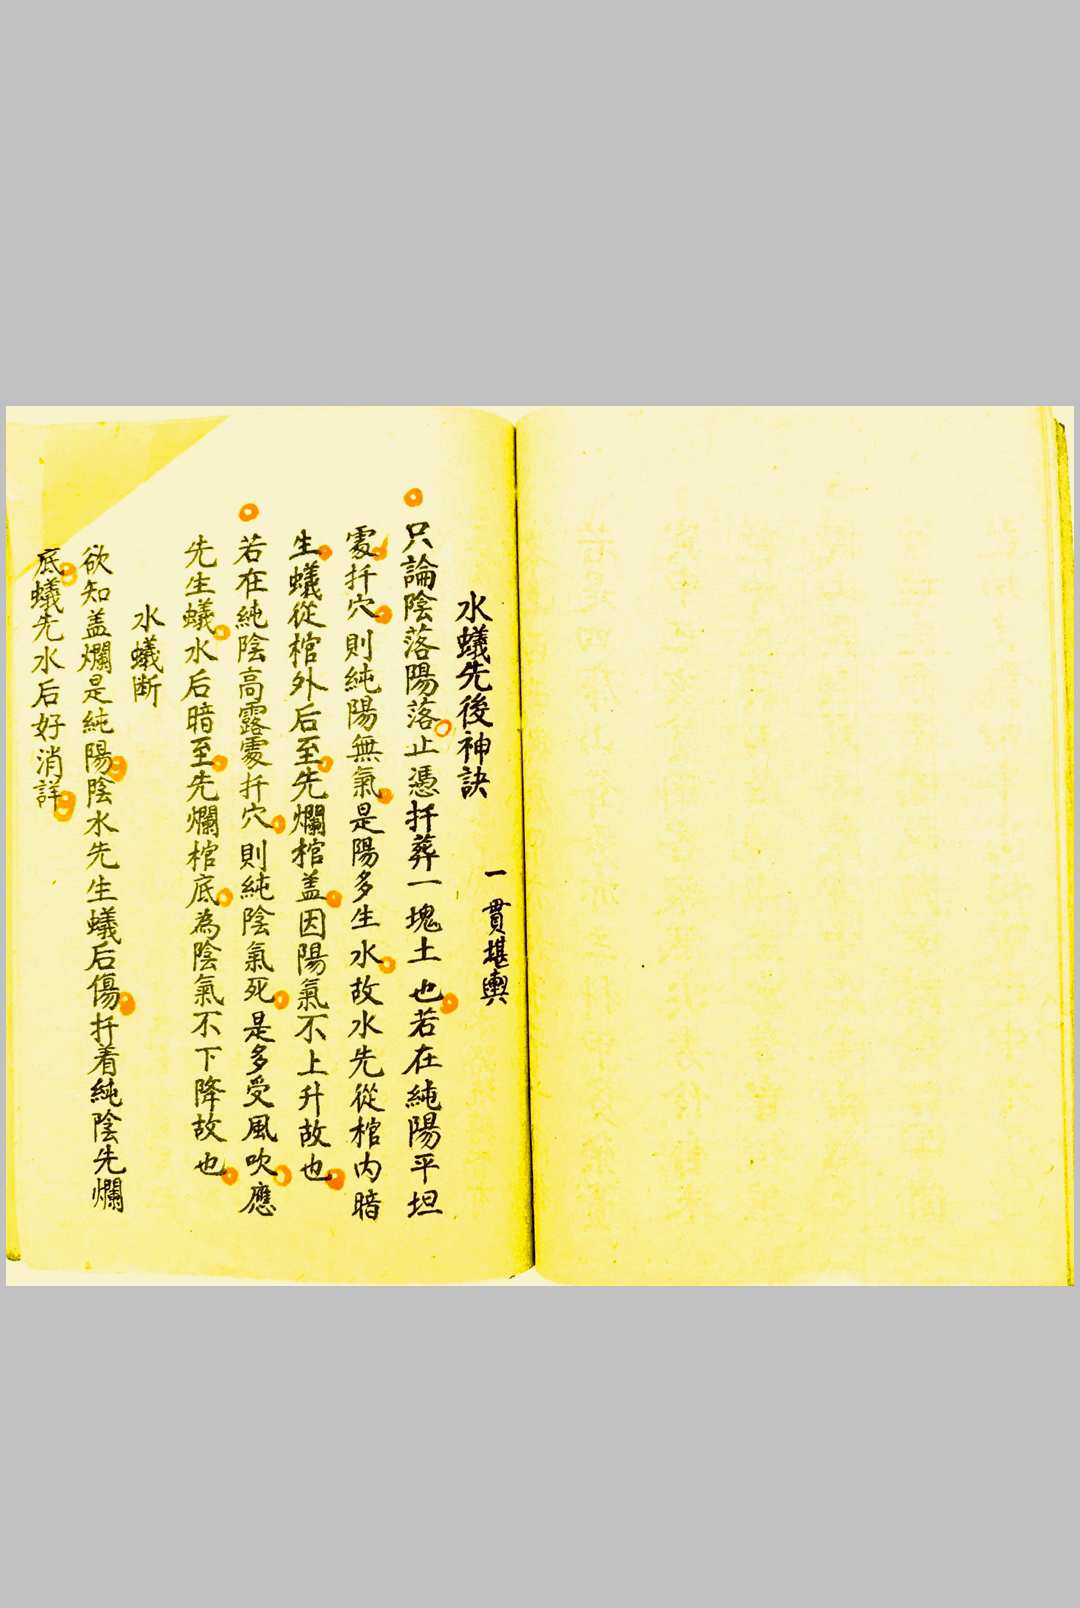 水蟻先後神訣
一貫堪輿
只論陰落陽落止憑扦葬一塊土也若在純陽平坦
處扦穴則純陽無氣是陽多生水故水先從棺内暗
生蟻從棺外后至先爛棺盖因陽氣不上升故也
若在純陰高露處扦穴則純陰氣死是多受風吹應
先生蟻水后暗至先爛棺底為陰氣不下降故也
水蟻断
欲知盖爛是純陽陰水先生蟻后傷扦着純陰先爛
底蟻先水后好消詳